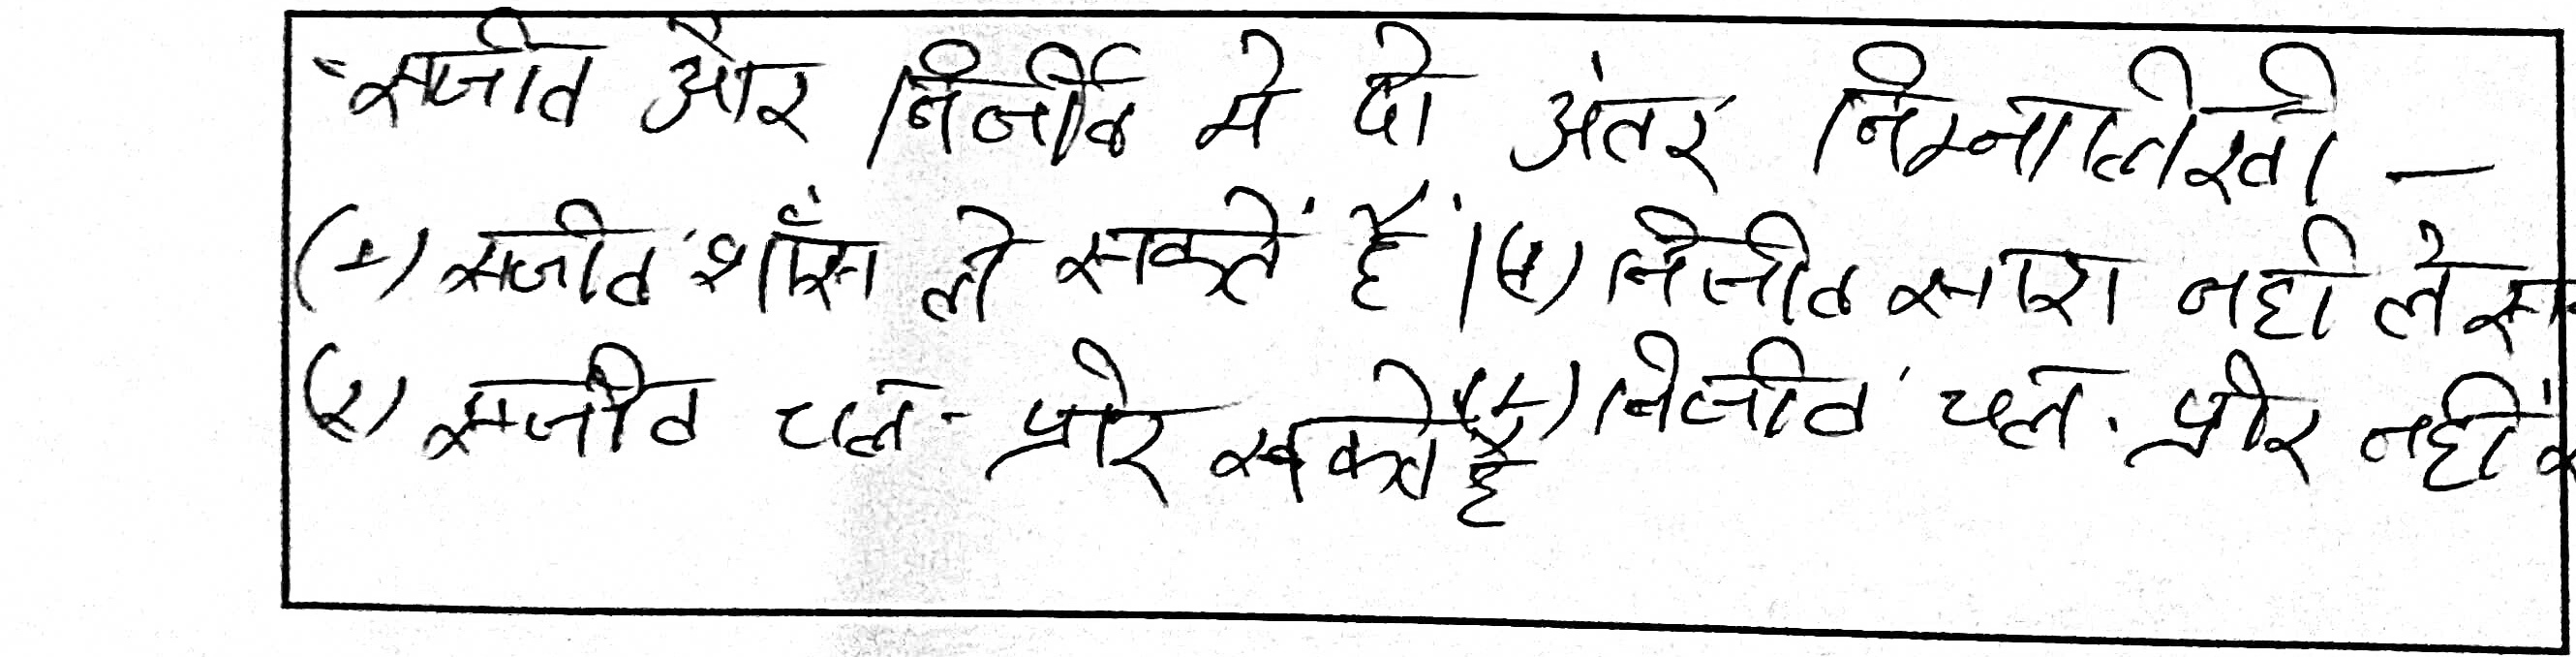 सजीव और निर्जीव मे दो अंतर निम्नालिखी –
(1) सजीव शाँस ले सकतें हैं। (1) निर्जीव सास नही ले स
(2) सजीव चल फीर सकते है (2) निर्जीव चल फीर नहीं